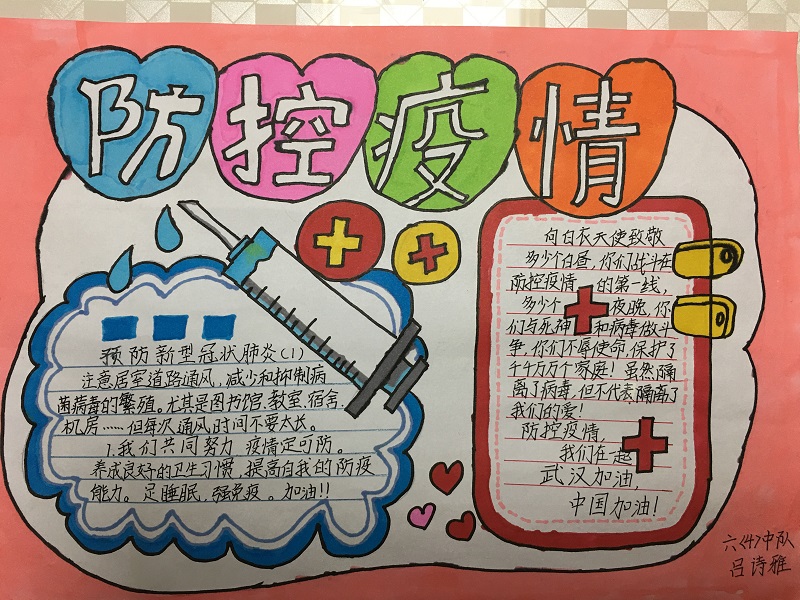 防控疫情
预防新型冠状肺炎(1)
注意居室道路通风,减少和抑制病
菌病毒的繁殖。尤其是图书馆、教室、宿舍、
机房……但每次通风时间不要太长。
1.我们共同努力 疫情定可防。
养成良好的卫生习惯,提高自我的防疫
能力。足睡眠,强免疫。加油!!
向白衣天使致敬
多少个白昼,你们战斗在
防控疫情 的第一线,
多少个 夜晚,你
们与死神 和病毒做斗
争,你们不辱使命,保护了
千千万万个家庭!虽然隔
离了病毒,但不代表隔离了
我们的爱!
防控疫情,
我们在
武汉加油,
中国加油!
六(4)中队
吕诗雅